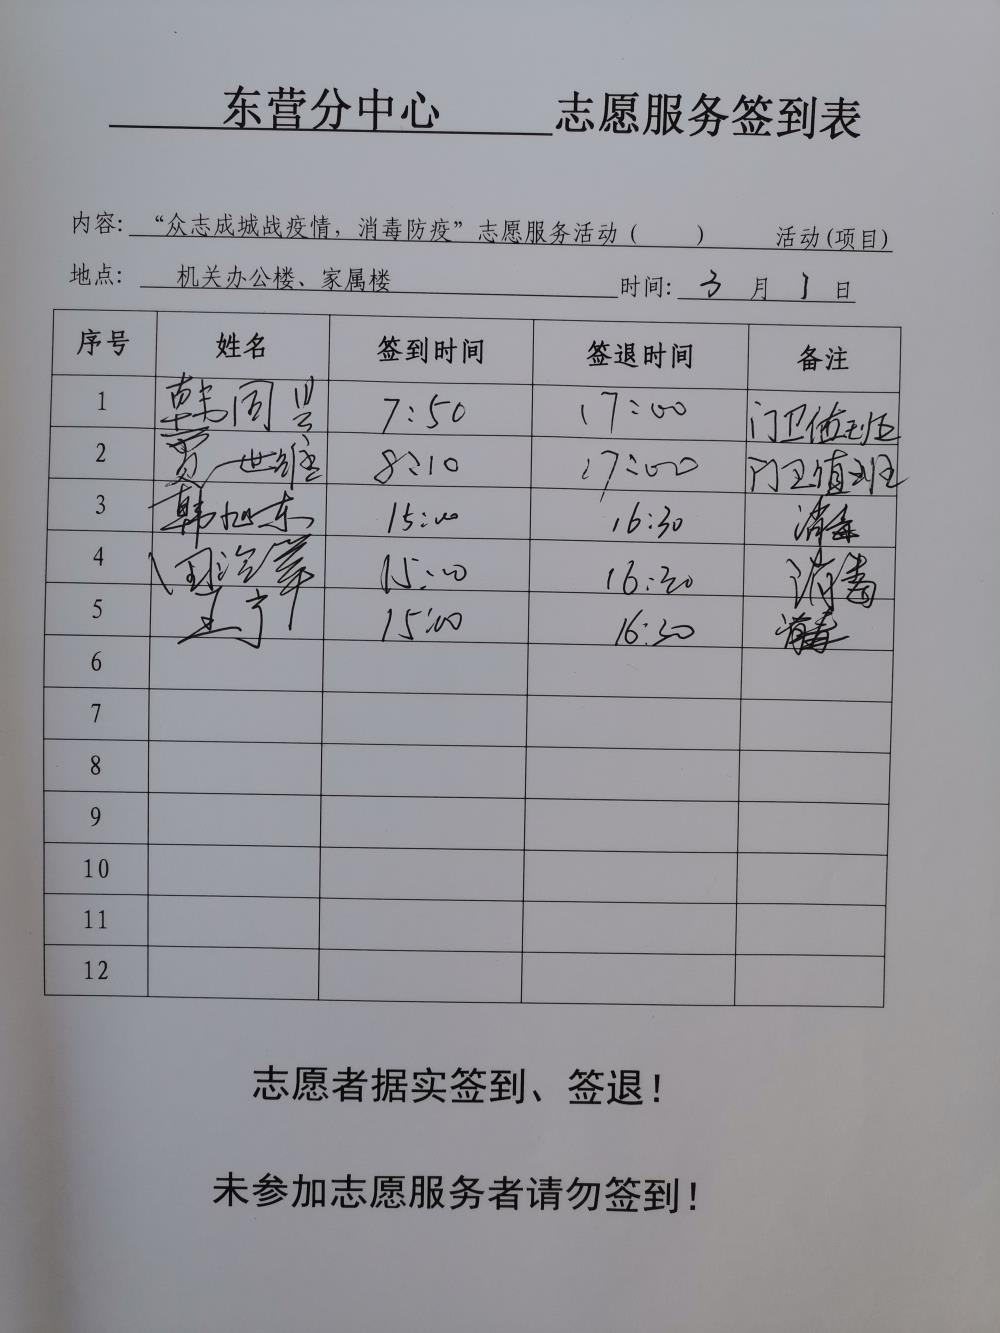 东营分中心 志愿服务签到表
内容: “众志成城战疫情，消毒防疫”志愿服务活动 ( ) 活动(项目)
地点: 机关办公楼、家属楼 时间: 3 月 1 日
序号 姓名 签到时间 签退时间 备注
1 韩同 7:50 17:00 门卫值班
2 贾世维 8:10 17:00 门卫值班
3 韩旭东 15:00 16:30 消毒
4 15:00 16:30 消毒
5 王宁 15:00 16:30 消毒
6
7
8
9
10
11
12
志愿者据实签到、签退!
未参加志愿服务者请勿签到!